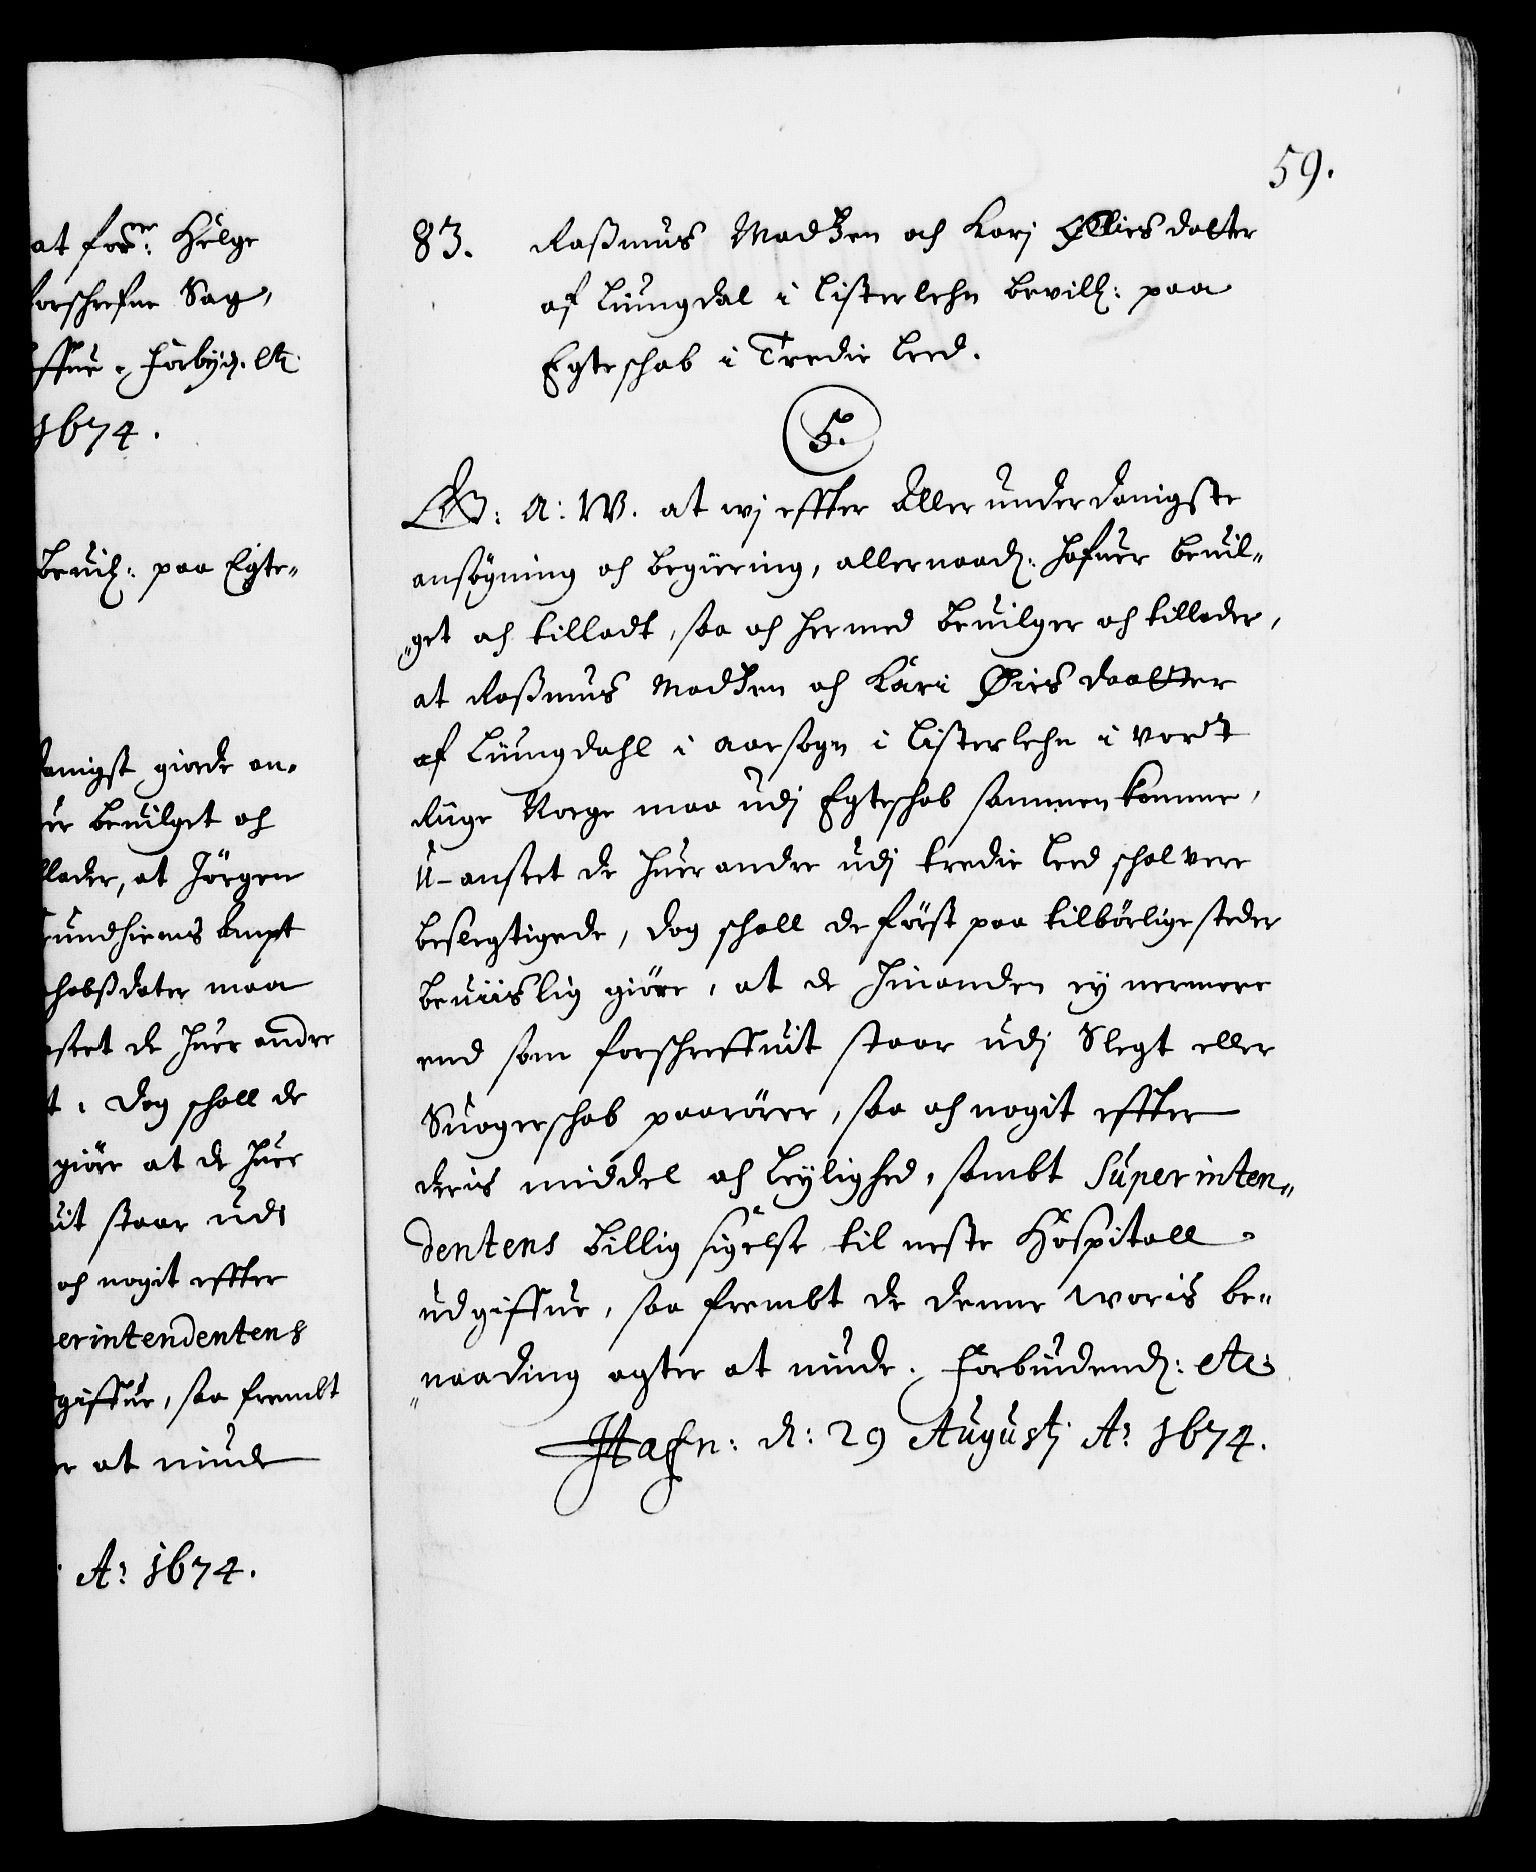 at forne: Helge
forschrefne Sag,
effue. Forbiud. etc
1674.
Bevilg: paa Egte„
danigst giorde an„
uer bevilget och
llader, at Jörgen
rundhiems Ampt
chobßdater maa
nseet de huer andre
t, dog schall de
giöre at de huer
uit staar udi
och nogit effter
erintendentens
giffue, saa frembt
er at niude
A: 1674.
59.
83. Rasmus Madtzen och Kari Øiesdatter
af Liungdal i Listerlehn bevilg: paa
Egteschab i Tredie Leed.
5.
G: A: W. at wj effter Aller underdanigste
ansögning och begiering, allernaad: hafuer bevil„
„get och tilladt, saa och hermed bevilger och tillader,
at Rasmus Madtzen och Kari Øies daatter
af Liungdahl i Aaesogn i Listerlehn i vort
Riige Norge maa udj Egteschab sammenkomme,
U-anseet de huer andre udj tredie Leed schal vere
beslegtigede, dog schall de först paa tilbörlige steder
beviislig giöre, at de hinanden ey nermere
end som forschreffuit staar udj Slegt eller
Suogerschab paarörer, saa och nogit effter
deris middel och Leylighed, sambt Superinten„
dentens billig sigelse til neste Hospitall
udgiffue, saa frembt de denne Woris be„
„naading agter at niude. Forbiudend: etc:
Hafn: d: 29 Augustj A: 1674.